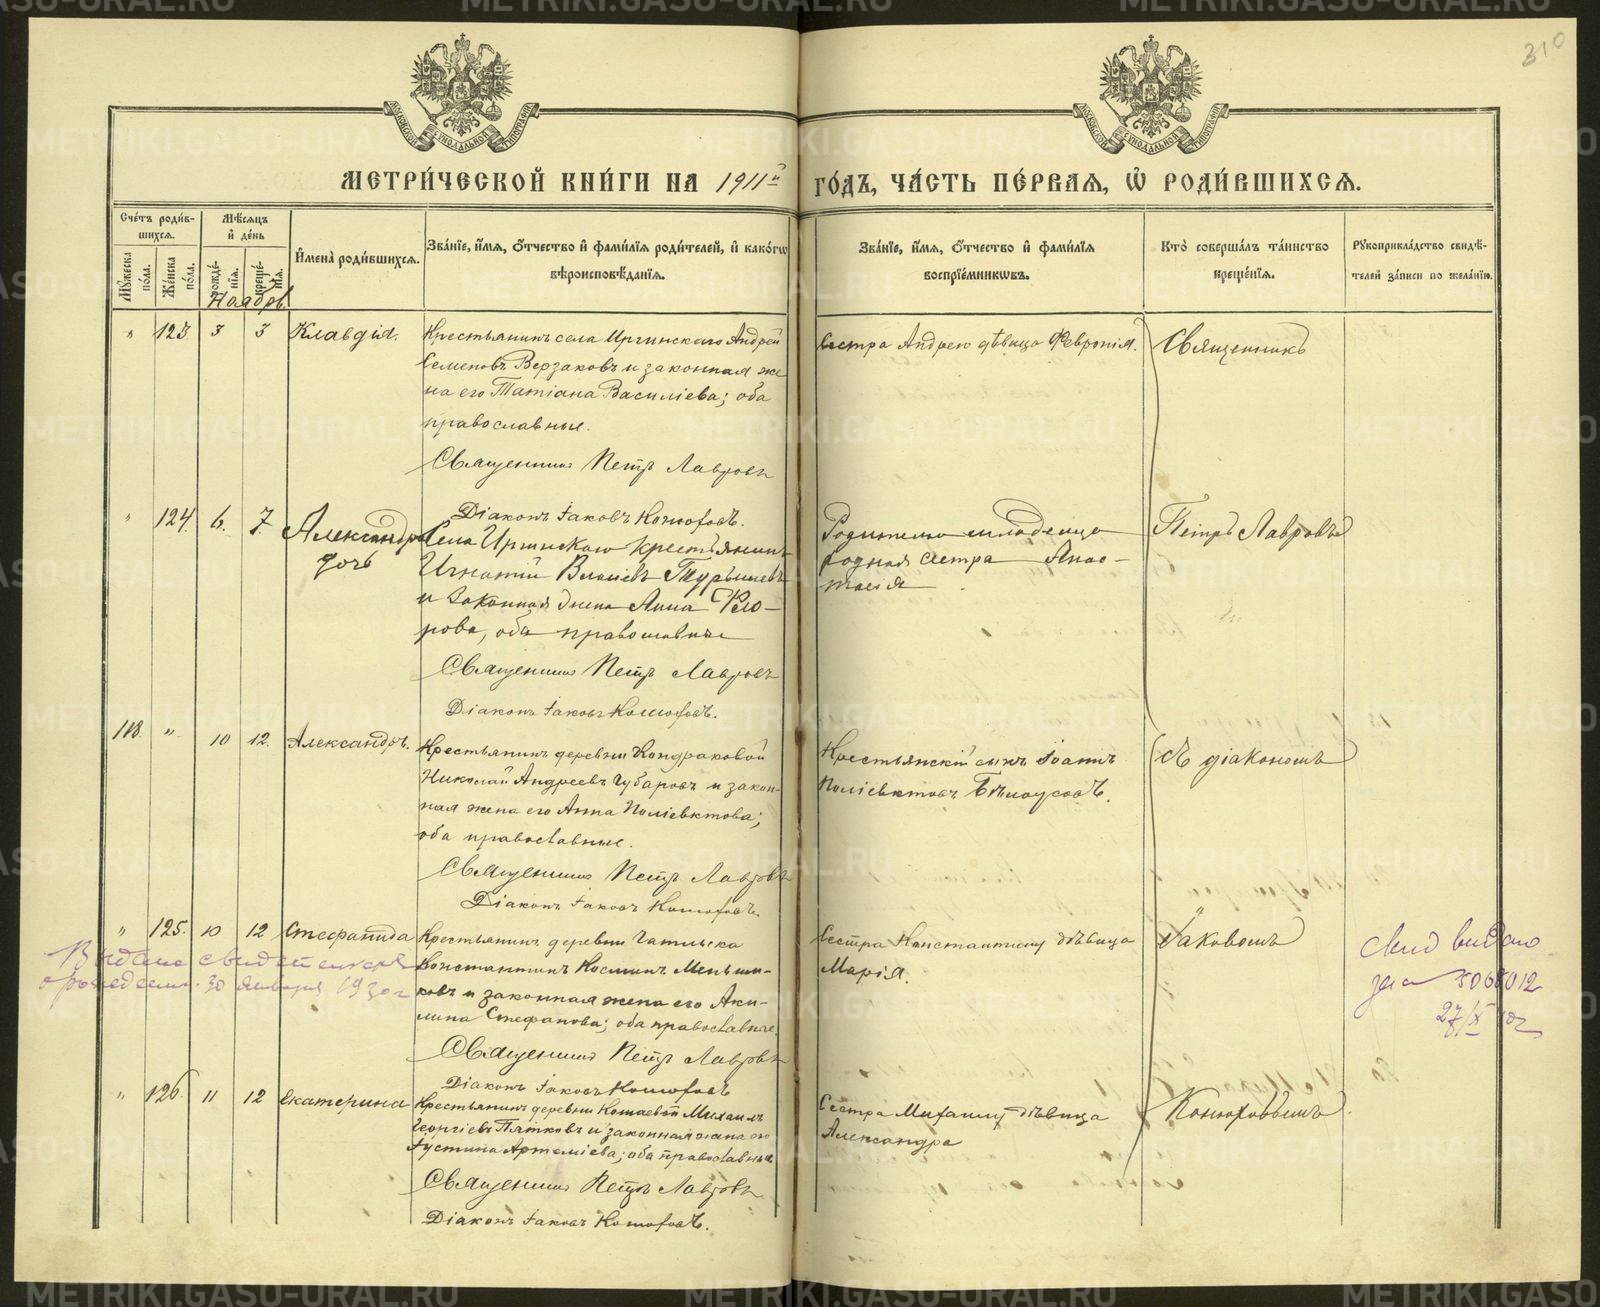 310
МЕТРИ́ЧЕСКОЙ КНИ́ГИ НА 1911й ГО́ДЪ, ЧА́СТЬ ПЕ́РВАЯ, Ѡ РОДИ́ВШИХСЯ.
Сче́тъ роди́в-
шихся.
Му́жеска по́ла.
Же́нска по́ла.
Мѣ́сяцъ и де́нь
рожде́нія.
креще́нія.
И҆мена̀ роди́вшихся.
Зва́ніе, и҆́мя, ѻ҆́тчество и҆ фами́лія роди́телей, и҆ како́гѡ
вѣроисповѣ́данія.
Зва́ніе, и҆́мя, ѻ҆́тчество и҆ фами́лія
воспріе́мниковъ.
Кто̀ соверша́лъ та́инство
креще́нія.
Рукоприкла́дство свидѣ́-
телей за́писи по жела́нію.
Ноябрь
" 123 3 3 Клавдія.
Крестьянинъ села Иргинскаго Андрей
Семеновъ Верзаковъ и законная же
на его Татіана Василіева; оба
православные.
Священникъ Петръ Лавровъ
Діаконъ Іаковъ Конюховъ.
Сестра Андрею дѣвица Февронія.
Священникъ
" 124 6. 7. Александра
дочь
Села Иргинскаго крестьянинъ
Игнатій Власіевъ Турышевъ
и законная жена Анна Фло-
рова, оба православные
Священникъ Петръ Лавровъ
Діаконъ Іаковъ Конюховъ.
Родителю младенца
родная сестра Анас-
тасія
Петръ Лавровъ
118. " 10 12. Александръ.
Крестьянинъ деревни Кондраковой
Николай Андреевъ Губаровъ и закон-
ная жена его Анна Поліевктова;
оба православные.
Священникъ Петръ Лавровъ
Діаконъ Іаковъ Конюховъ.
Крестьянскій сынъ Іоаннъ
Поліевктовъ Бѣлоусовъ.
съ діакономъ
" 125. 10 12 Стефанида
Крестьянинъ деревни
Константинъ Косминъ Меньши-
ковъ и законная жена его Аки-
лина Стефанова; оба православные
Священникъ Петръ Лавровъ
Діаконъ Іаковъ Конюховъ
Сестра Константину дѣвица
Марія.
Іаковомъ
Выдано свидетельство
о рождении. 30 января 1930г
свид выдано
27/X
" 126. 11 12 Екатерина
Крестьянинъ деревни Михаилъ
Георгіевъ Пятковъ и законная жена его
Іустина Артеміева; оба православные
Священникъ Петръ Лавровъ
Діаконъ Іаковъ Конюховъ.
Сестра Михаилу дѣвица
Александра
Конюховымъ.
METRIKI.GASO-URAL.RU